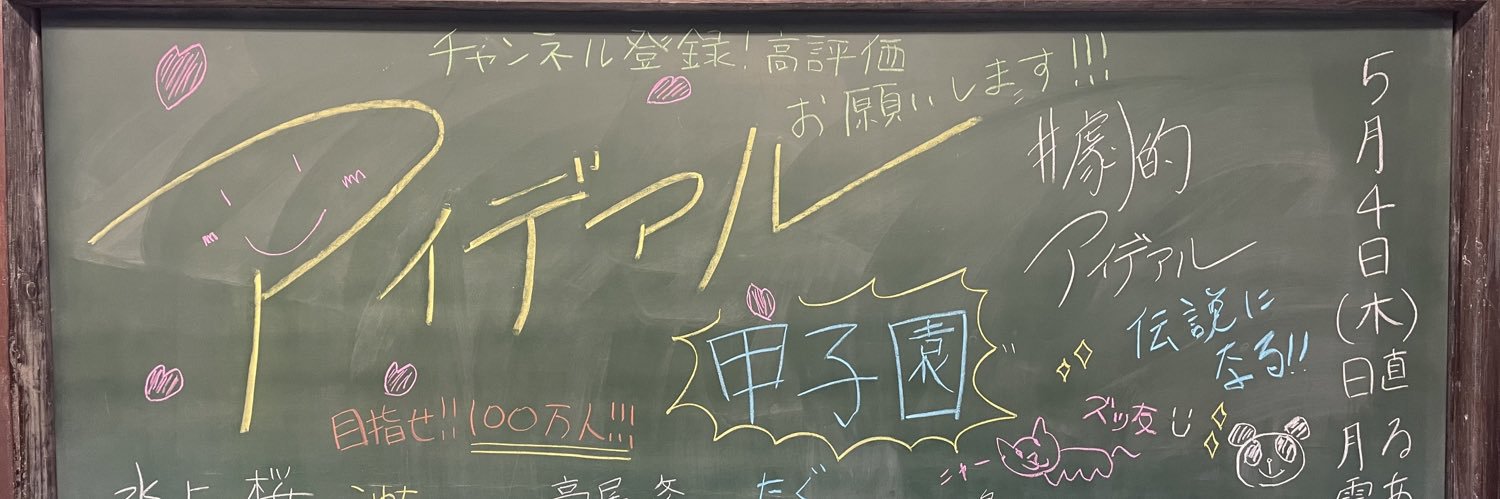 チャンネル登録!高評価
お願いします!!!
アイデアル
甲子園
目指せ!!100万人!!!
#劇的
アイデアル
伝説に
なる!!
ズッ友
ニャー
5月4日(木)日直